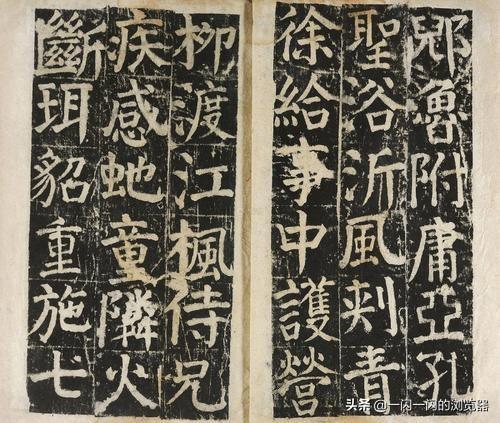 郳魯附庸亞孔
聖浴沂風刺青
徐給事中護營
柳渡江楓侍兄
疾感虵童隣火
斷珥貂重施七
头条 @一闪一闪的浏览器